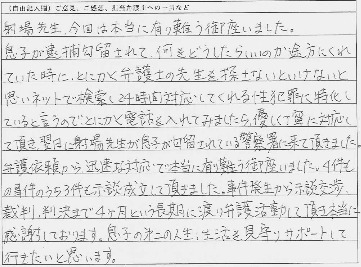 (自由記入欄)ご意見、ご感想、担当弁護士への一言など
射場先生、今回は本当に有り難う御座いました。
息子が逮捕勾留されて、何をどうしたらいいのか途方にくれ
ていた時に、とにかく弁護士の先生を探さないといけないと
思いネットで検索し24時間対応してくれる性犯罪に特化し
ていると言うのでとにかく電話を入れてみましたら、優しくて真に対応し
て頂き翌日に射場先生が息子が勾留されている警察署に来て頂きました。
弁護依頼から迅速な対応で本当に有り難う御座いました。4件も
の事件のうち3件も示談成立して頂きました。事件発生から示談交渉、
裁判、判決まで4ヶ月という長期に渡り弁護活動して頂き本当に
感謝しております。息子の第二の人生、生活を見守りサポートして
行きたいと思います。